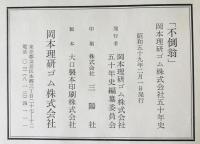 「不倒翁」
岡本理研ゴム株式会社五十年史
昭和五十九年二月一日発行
発行者 岡本理研ゴム株式会社
五十年史編纂委員会
印刷 株式会社 三陽社
製本 大口製本印刷株式会社
岡本理研ゴム株式会社
東京都文京区本郷三丁目二十七ー十二
電話